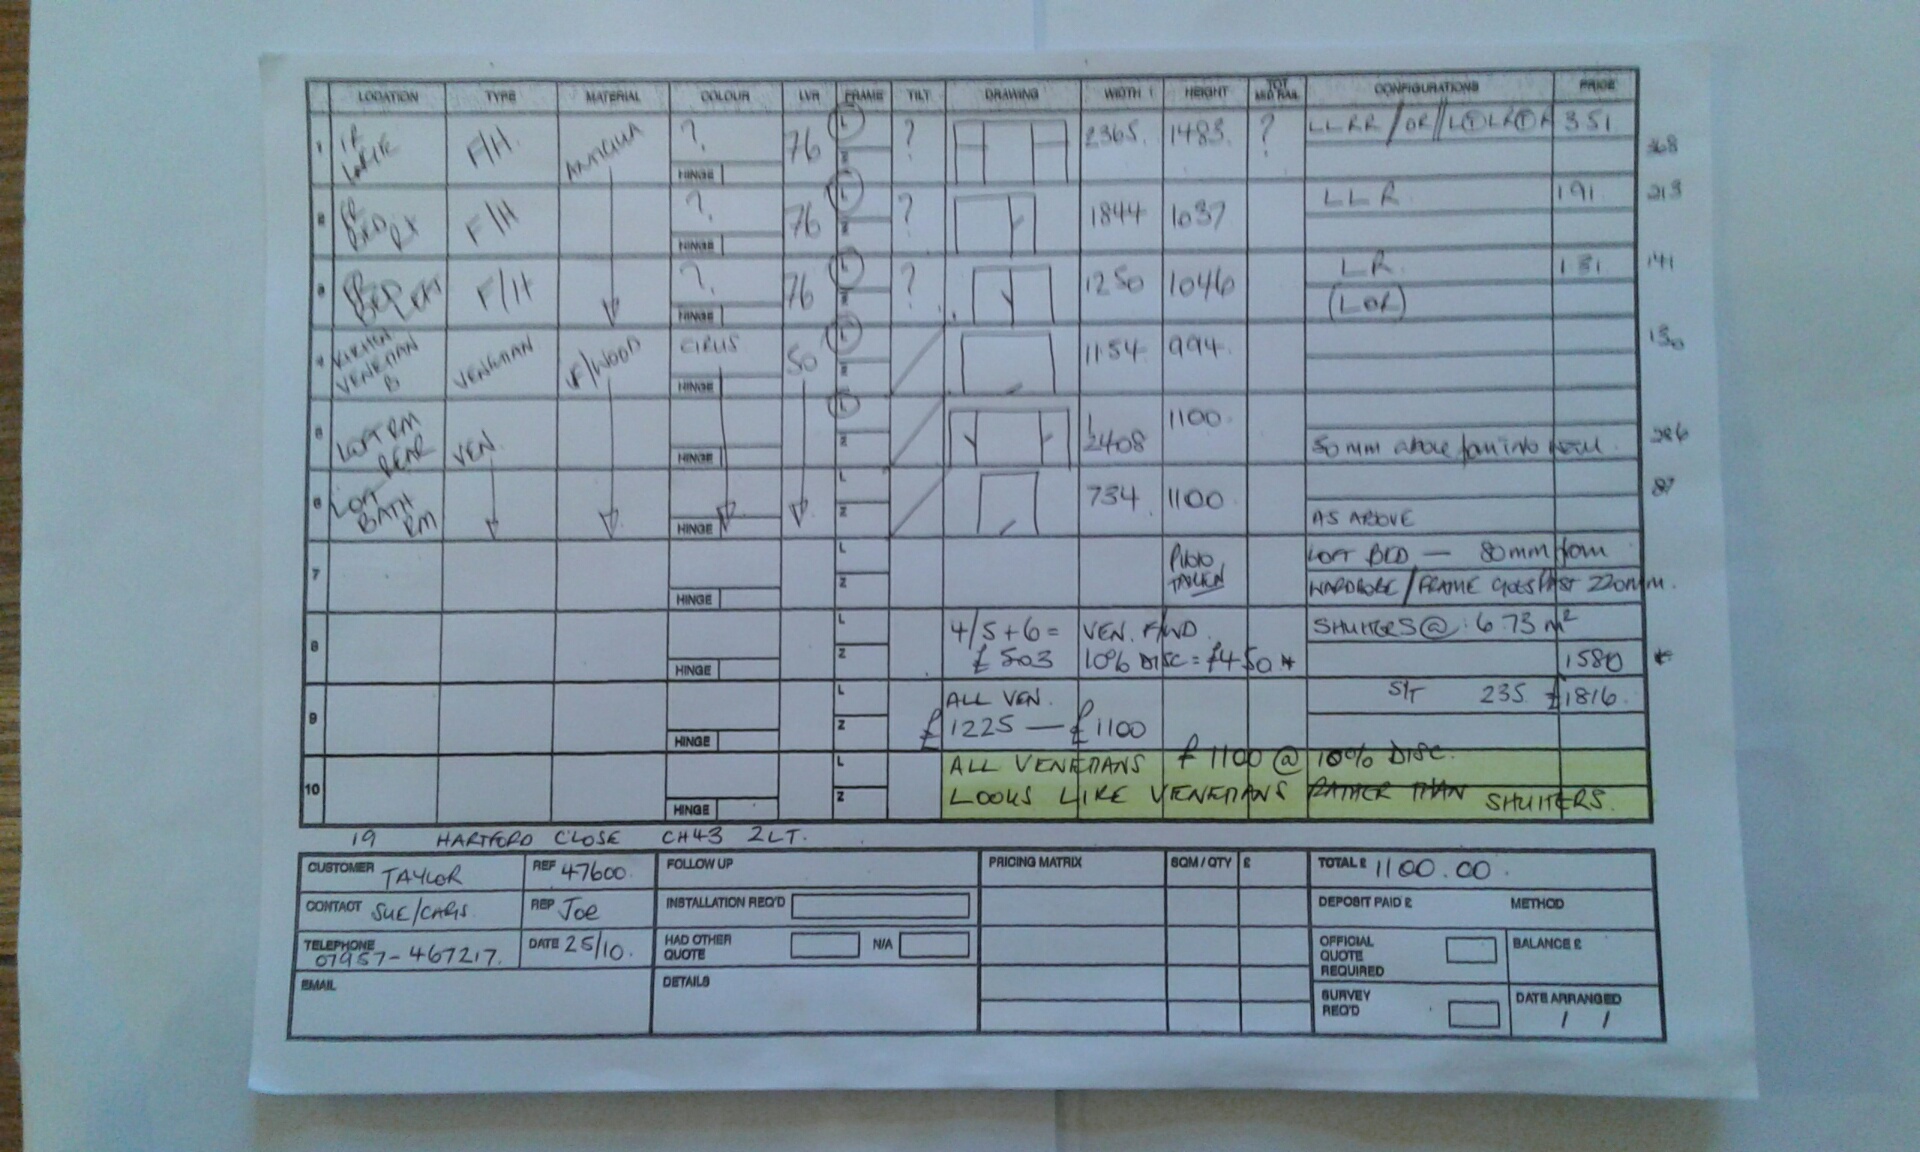 LOCATION TYPE MATERIAL COLOUR LVR FRAME TILT DRAWING WIDTH HEIGHT TOT MID RAIL CONFIGURATIONS PRICE
1 F/H. ANTIGUA ? HINGE 76 L Z ? 2365. 1483. ? LLRR / OR // L T L R T R 3.51 368
2 F/H ? HINGE 76 L Z ? 1844 1037 LLR 1.91 213
3 F/H ? HINGE 76 L Z ? 1250 1046 LR. 1.31 141
(LOR)
4 KITCHEN VENETIAN B VENETIAN F/WOOD CIRUS HINGE 50 L Z 1154 994. 130
5 LOFT RM REAR VEN. HINGE L Z 2408 1100. 286
50mm above
6 LOFT BATH RM HINGE L Z 734 1100 87
AS ABOVE
7 HINGE L Z PHOTO TAKEN LOFT BED — 80mm from
WARDROBE / FRAME GOES PAST 220mm.
8 HINGE L Z 4/5+6 = VEN. F/WD. SHUTTERS @ 6.73 m²
£503 10% DISC = £450 * 1580 *
9 HINGE L Z ALL VEN. S/T 235 £1816.
£1225 — £1100
10 HINGE L Z ALL VENETIANS £1100 @ 10% DISC.
LOOKS LIKE VENETIANS RATHER THAN SHUTTERS.
19 HARTFORD CLOSE CH43 2LT.
CUSTOMER TAYLOR REF 47600. FOLLOW UP PRICING MATRIX SQM / QTY £ TOTAL £ 1100.00.
CONTACT SUE/ REP JOE INSTALLATION REQ'D DEPOSIT PAID £ METHOD
TELEPHONE 07957-467217. DATE 25/10. HAD OTHER QUOTE N/A OFFICIAL QUOTE REQUIRED BALANCE £
EMAIL DETAILS SURVEY REQ'D DATE ARRANGED
/ /